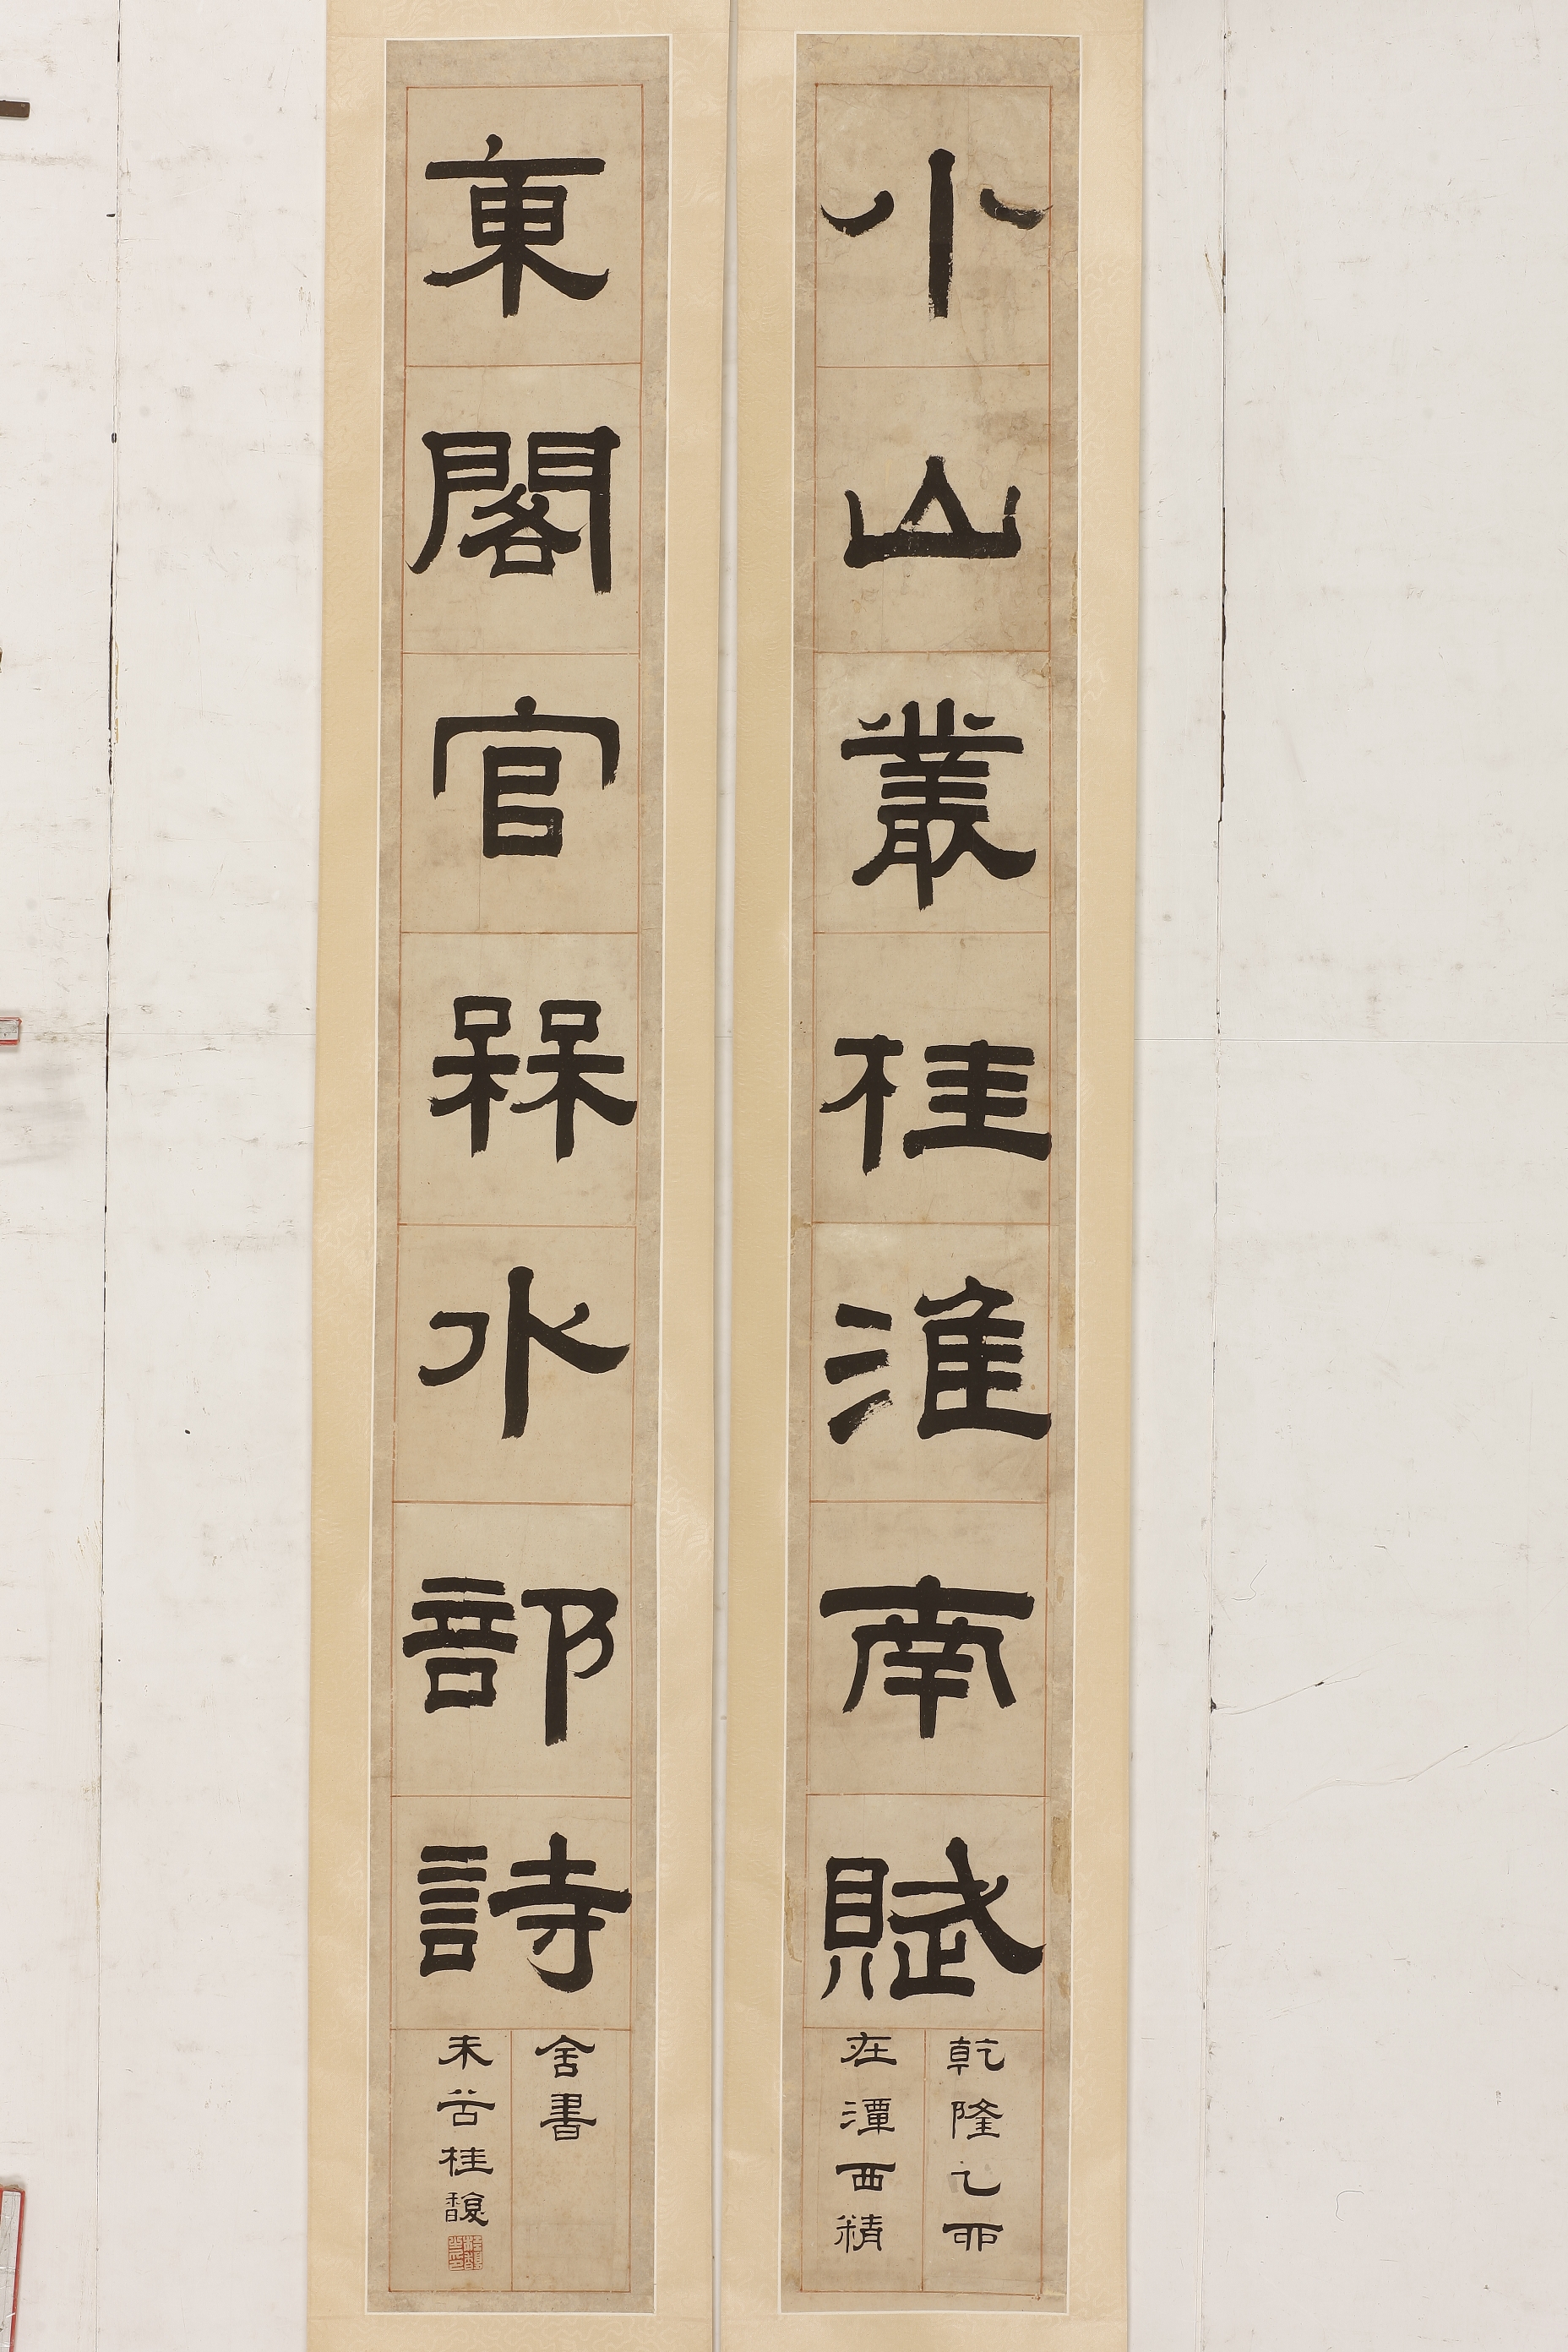 小山叢桂淮南賦
乾隆乙卯
在潭西精
東閣官槑水部詩
舍書
未谷桂馥
桂馥之印